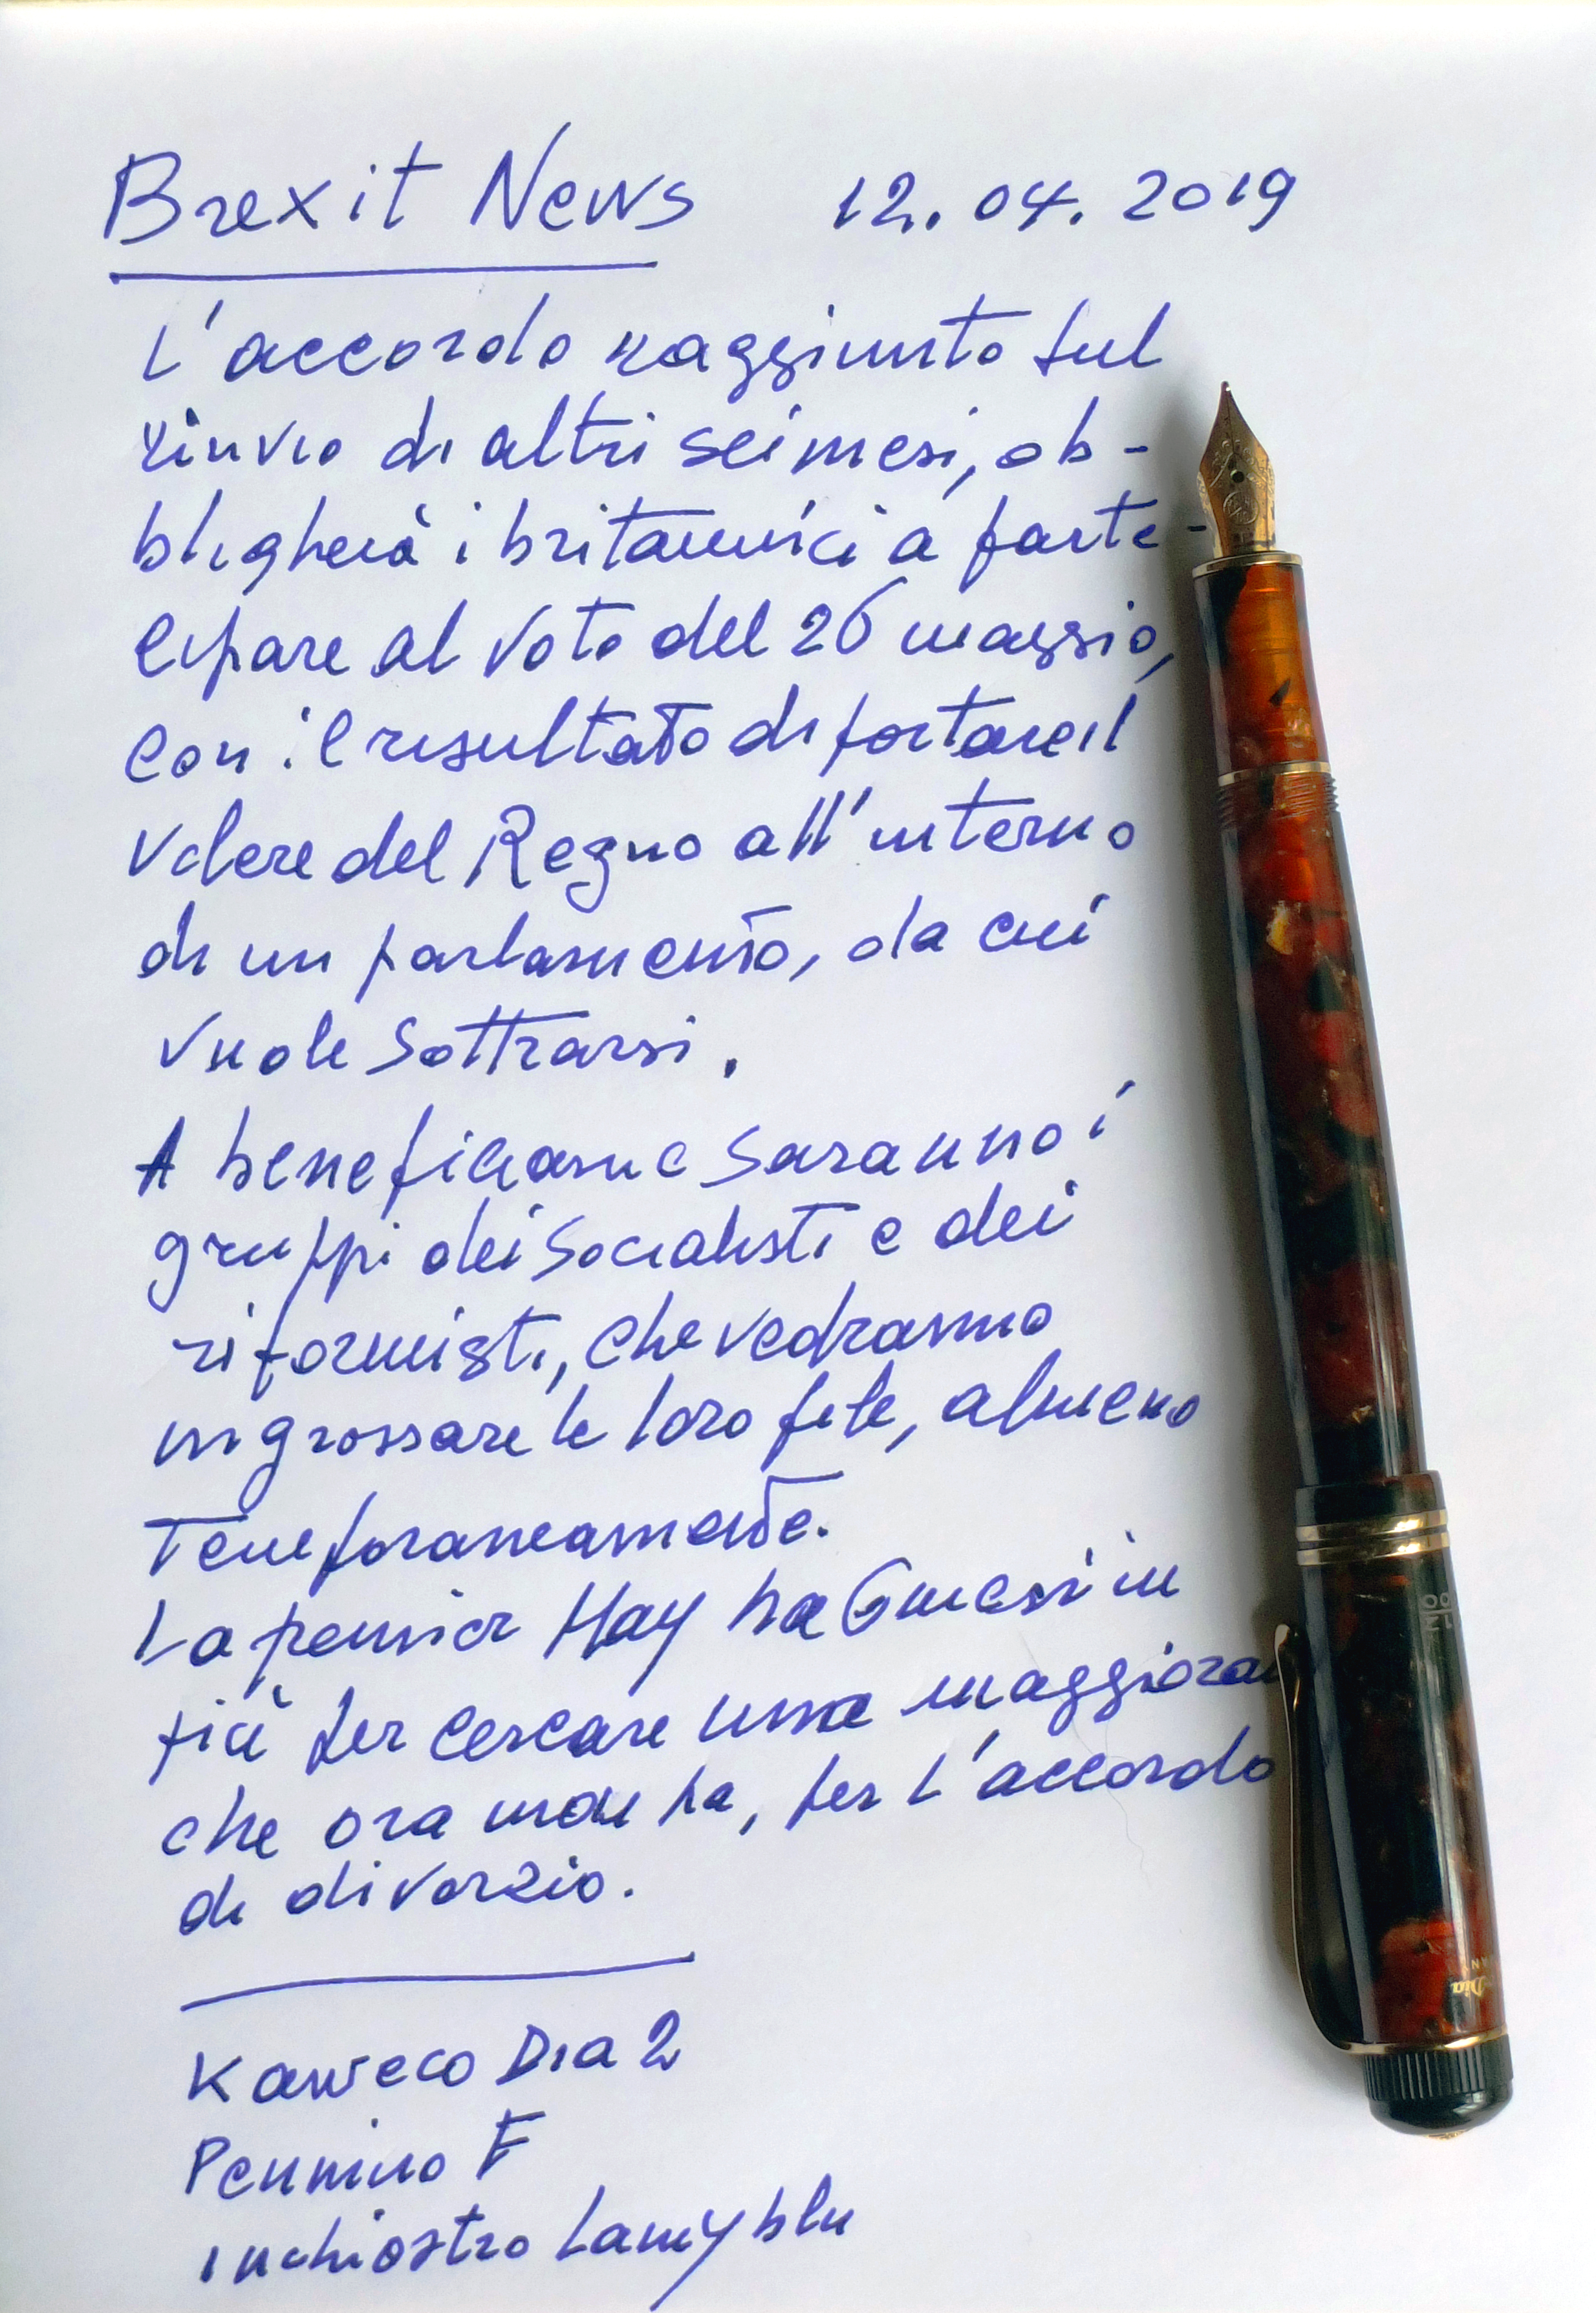 Brexit News 12.04.2019
L'accordo raggiunto sul
rinvio di altri sei mesi, ob-
bligherà i britannici a parte-
cipare al voto del 26 maggio,
con il risultato di portare il
volere del Regno all'interno
di un parlamento, da cui
vuole sottrarsi.
A beneficiarne saranno i
gruppi dei Socialisti e dei
riformisti, che vedranno
ingrossare le loro file, almeno
temporaneamente.
La premier May ha 6 mesi in
più per cercare una
che ora non ha, per l'accordo
di divorzio.
Kaweco Dia 2
Pennino F
inchiostro Lamy blu
Dia